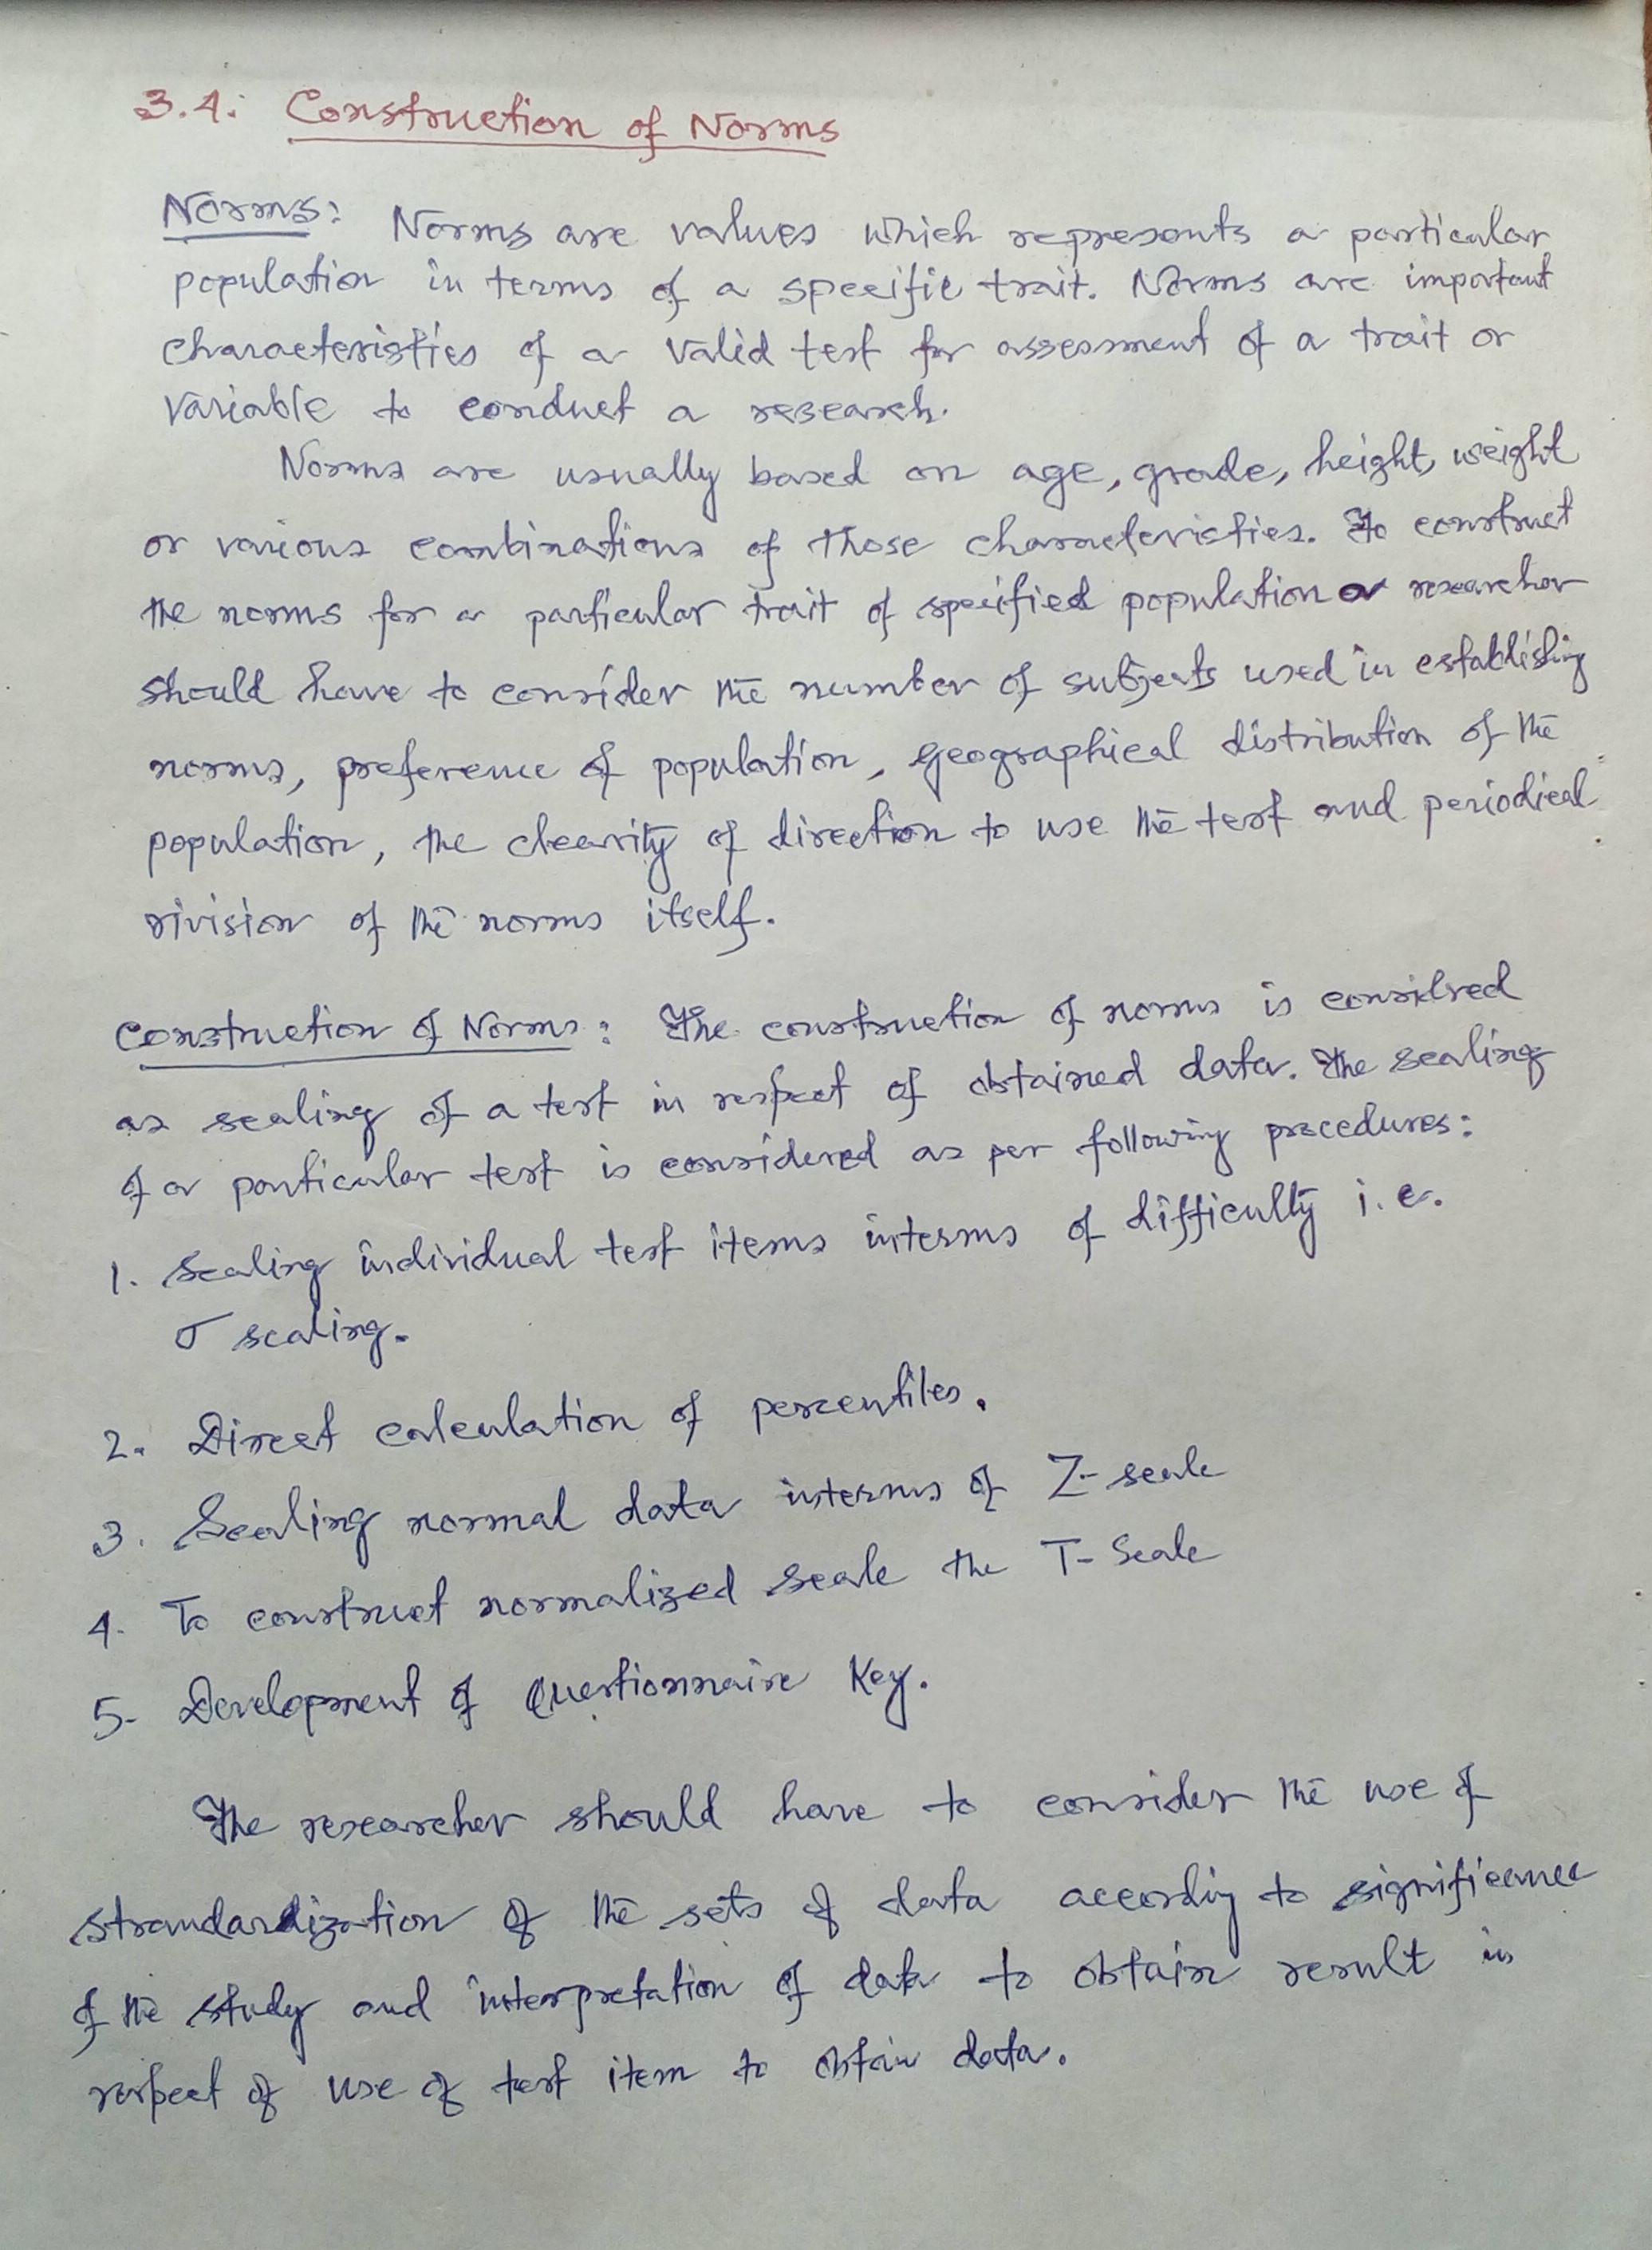 3.4: Construction of Norms
Norms: Norms are values which represents a particular
population in terms of a specific trait. Norms are important
characteristics of a valid test for assessment of a trait or
variable to conduct a research.
Norms are usually based on age, grade, height, weight
or various combinations of those characteristics. To construct
the norms for a particular trait of specified population a researcher
should have to consider the number of subjects used in establishing
norms, preference of population, geographical distribution of the
population, the clearity of direction to use the test and periodical
rivision of the norms itself.
Construction of Norms: The construction of norms is considred
as scaling of a test in respect of obtained data. The scaling
of a particular test is considered as per following procedures:
1. Scaling individual test items interms of difficulty i.e.
σ scaling.
2. Direct calculation of percentiles.
3. Scaling normal data interms of Z-scale
4. To construct normalized scale the T-Scale
5- Development of Questionnaire Key.
The researcher should have to consider the use of
strandardization of the sets of data according to significance
of the study and interpretation of data to obtain result in
respect of use of test item to obtain data.